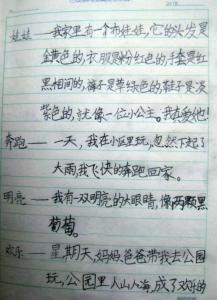 娃娃——我家里有个布娃娃,它的头发是
金黄色的,衣服是粉红色的,手套是红
黑相间的,裤子是草绿色的,鞋子是淡
紫色的,就像一位小公主。我真爱他!
奔跑——一天,我在小区里玩,忽然下起了
大雨,我飞快的奔跑回家。
明亮——我有一双明亮的大眼睛,像两颗黑
葡萄。
欢乐——星期天,妈妈爸爸带我去公园
玩,公园里人山人海,成了欢乐的